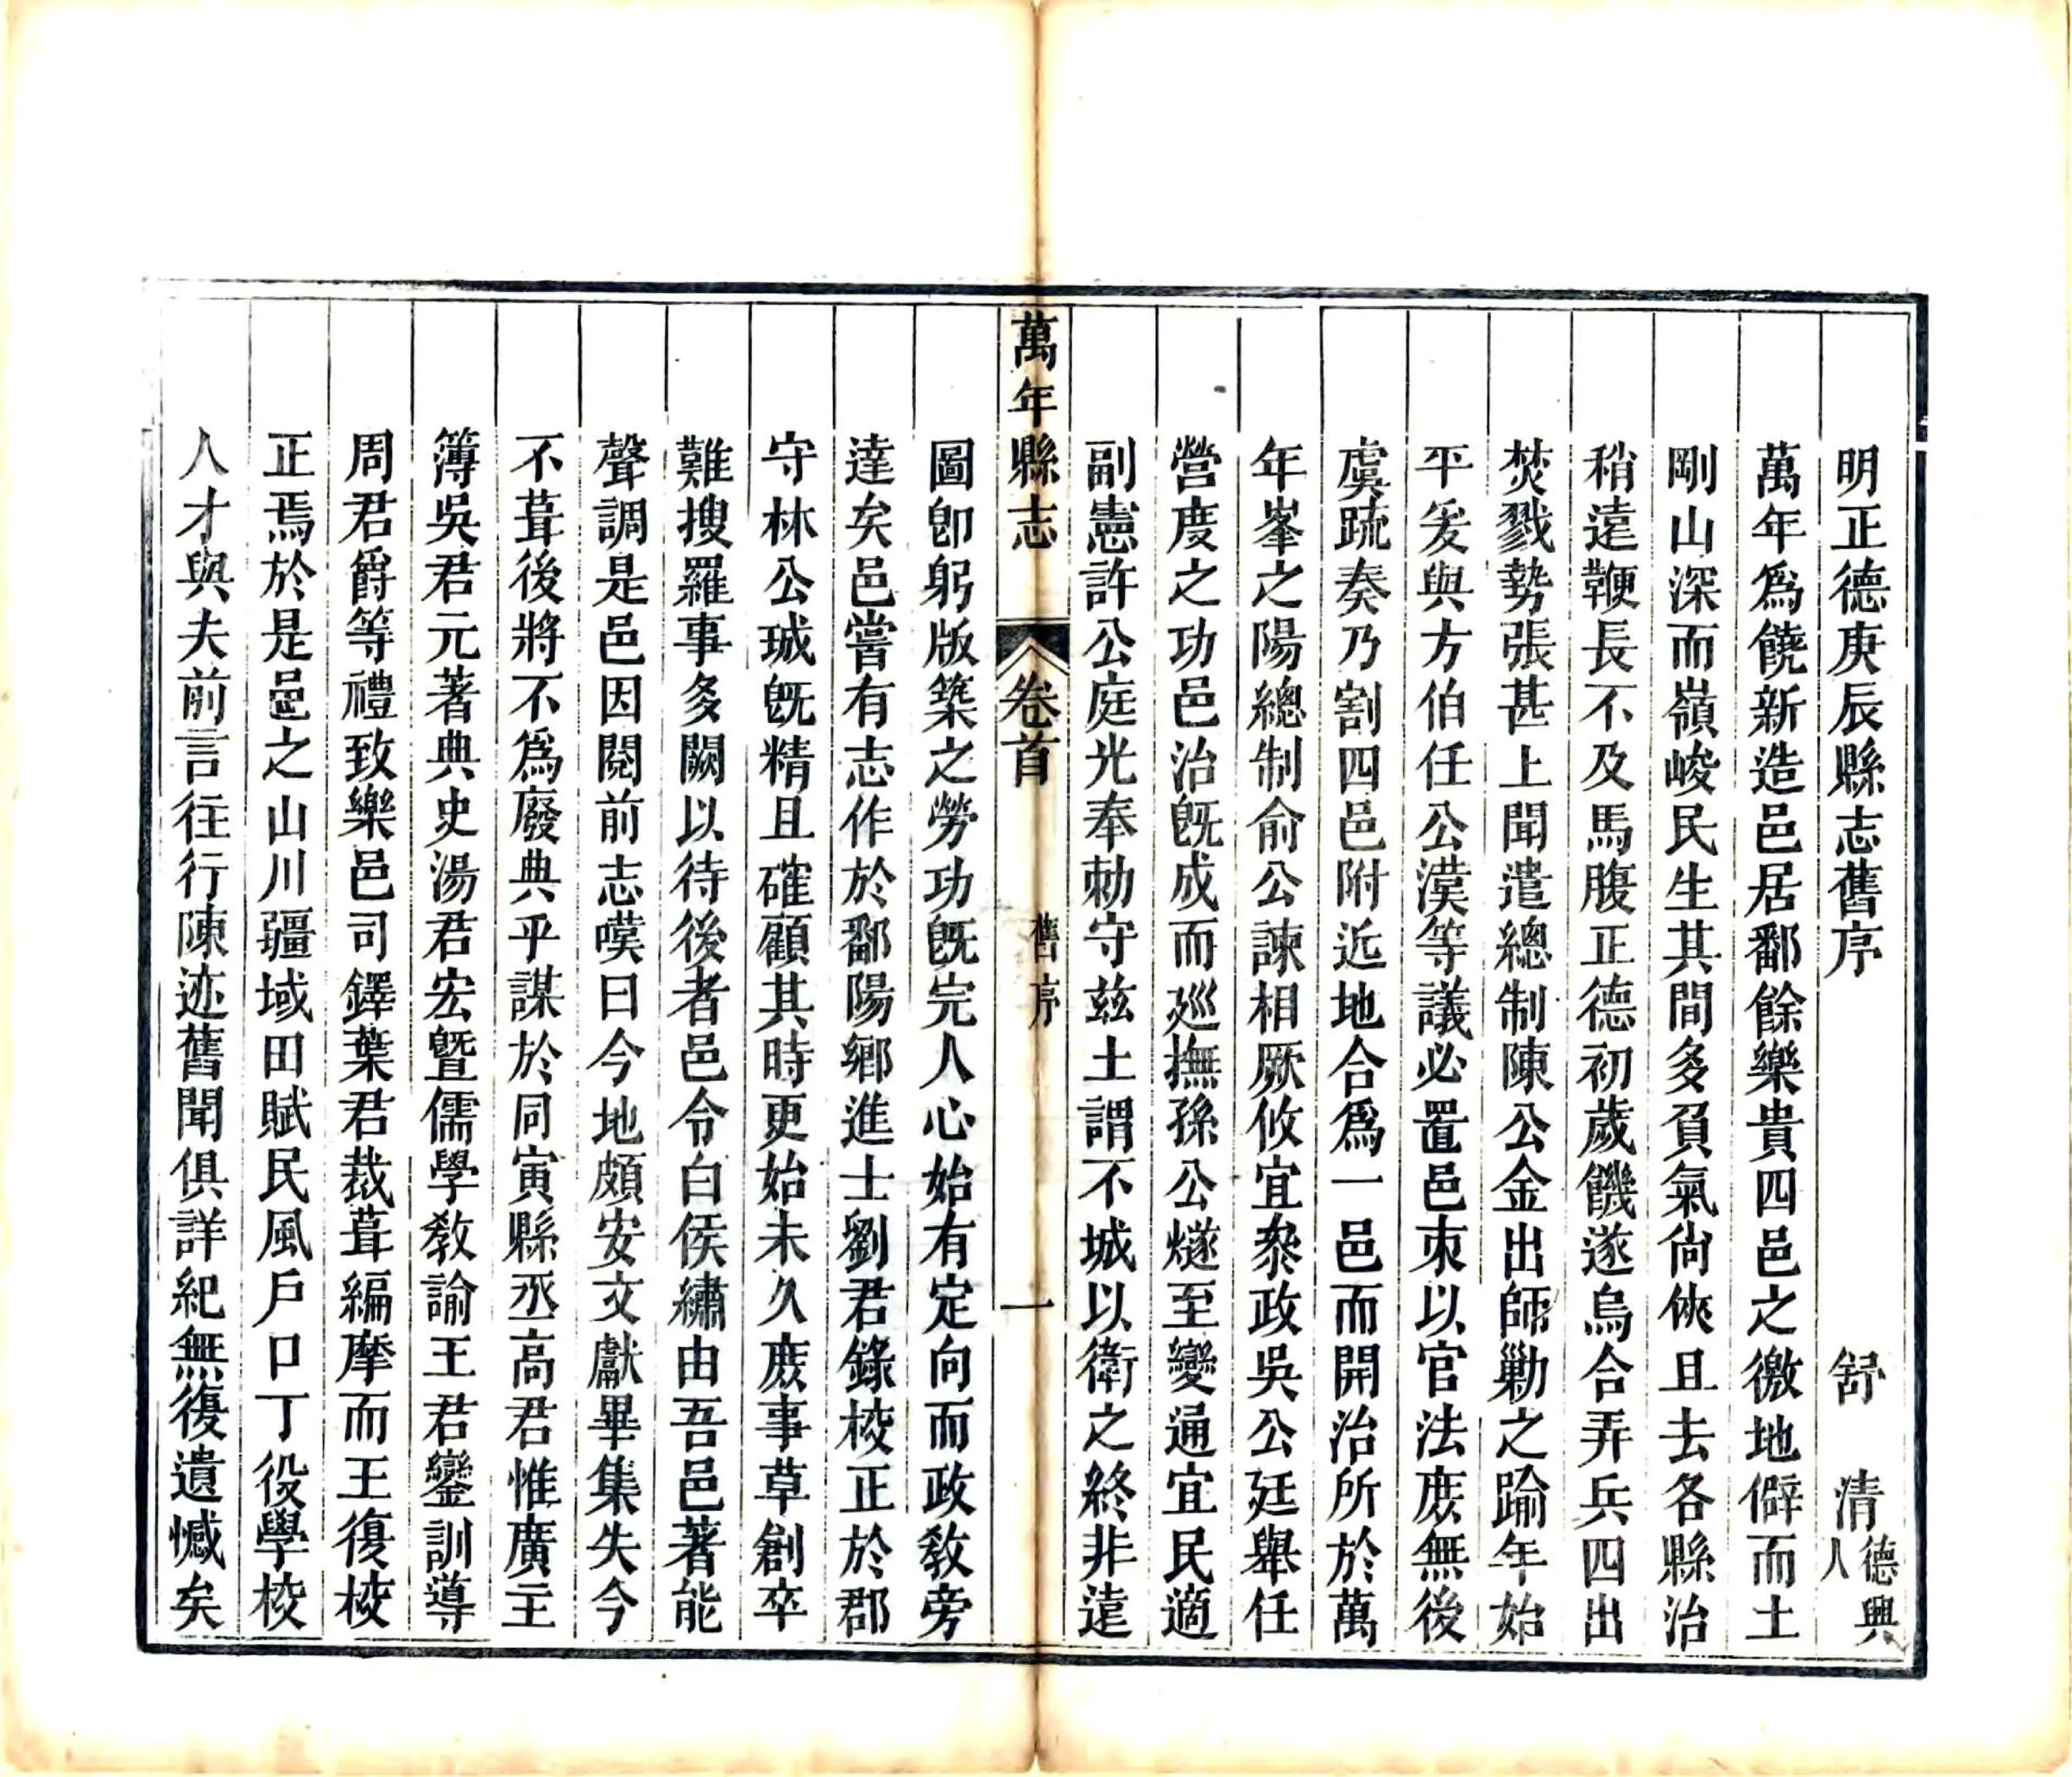 明正德庚辰縣志舊序 舒 清 德興人
萬年爲饒新造邑居鄱餘樂貴四邑之徼地僻而土
剛山深而嶺峻民生其間多負氣尙俠且去各縣治
稍遠鞭長不及馬腹正德初歲饑遂烏合弄兵四出
焚戮勢張甚上聞遣總制陳公金出師勦之踰年始
平爰與方伯任公漢等議必置邑朿以官法庶無後
虞䟽奏乃割四邑附近地合爲一邑而開治所於萬
年峯之陽總制俞公諫相厥攸宜叅政吳公廷舉任
營度之功邑治旣成而廵撫孫公燧至變通宜民適
副憲許公庭光奉勅守兹土謂不城以衛之終非遠
圖卽躬版築之勞功旣完人心始有定向而政敎旁
達矣邑嘗有志作於鄱陽鄉進士劉君錄校正於郡
守林公珹旣精且確顧其時更始未久庶事草創卒
難搜羅事多闕以待後者邑令白侯繡由吾邑著能
聲調是邑因閱前志嘆曰今地頗安文獻畢集失今
不葺後將不爲廢典乎謀於同寅縣丞高君惟廣主
簿吳君元著典史湯君宏曁儒學敎諭王君鑾訓導
周君爵等禮致樂邑司鐸葉君裁葺編摩而王復校
正焉於是邑之山川疆域田賦民風戶口丁役學校
人才與夫前言往行陳迹舊聞俱詳紀無復遺憾矣
萬年縣志 卷首 舊序 一